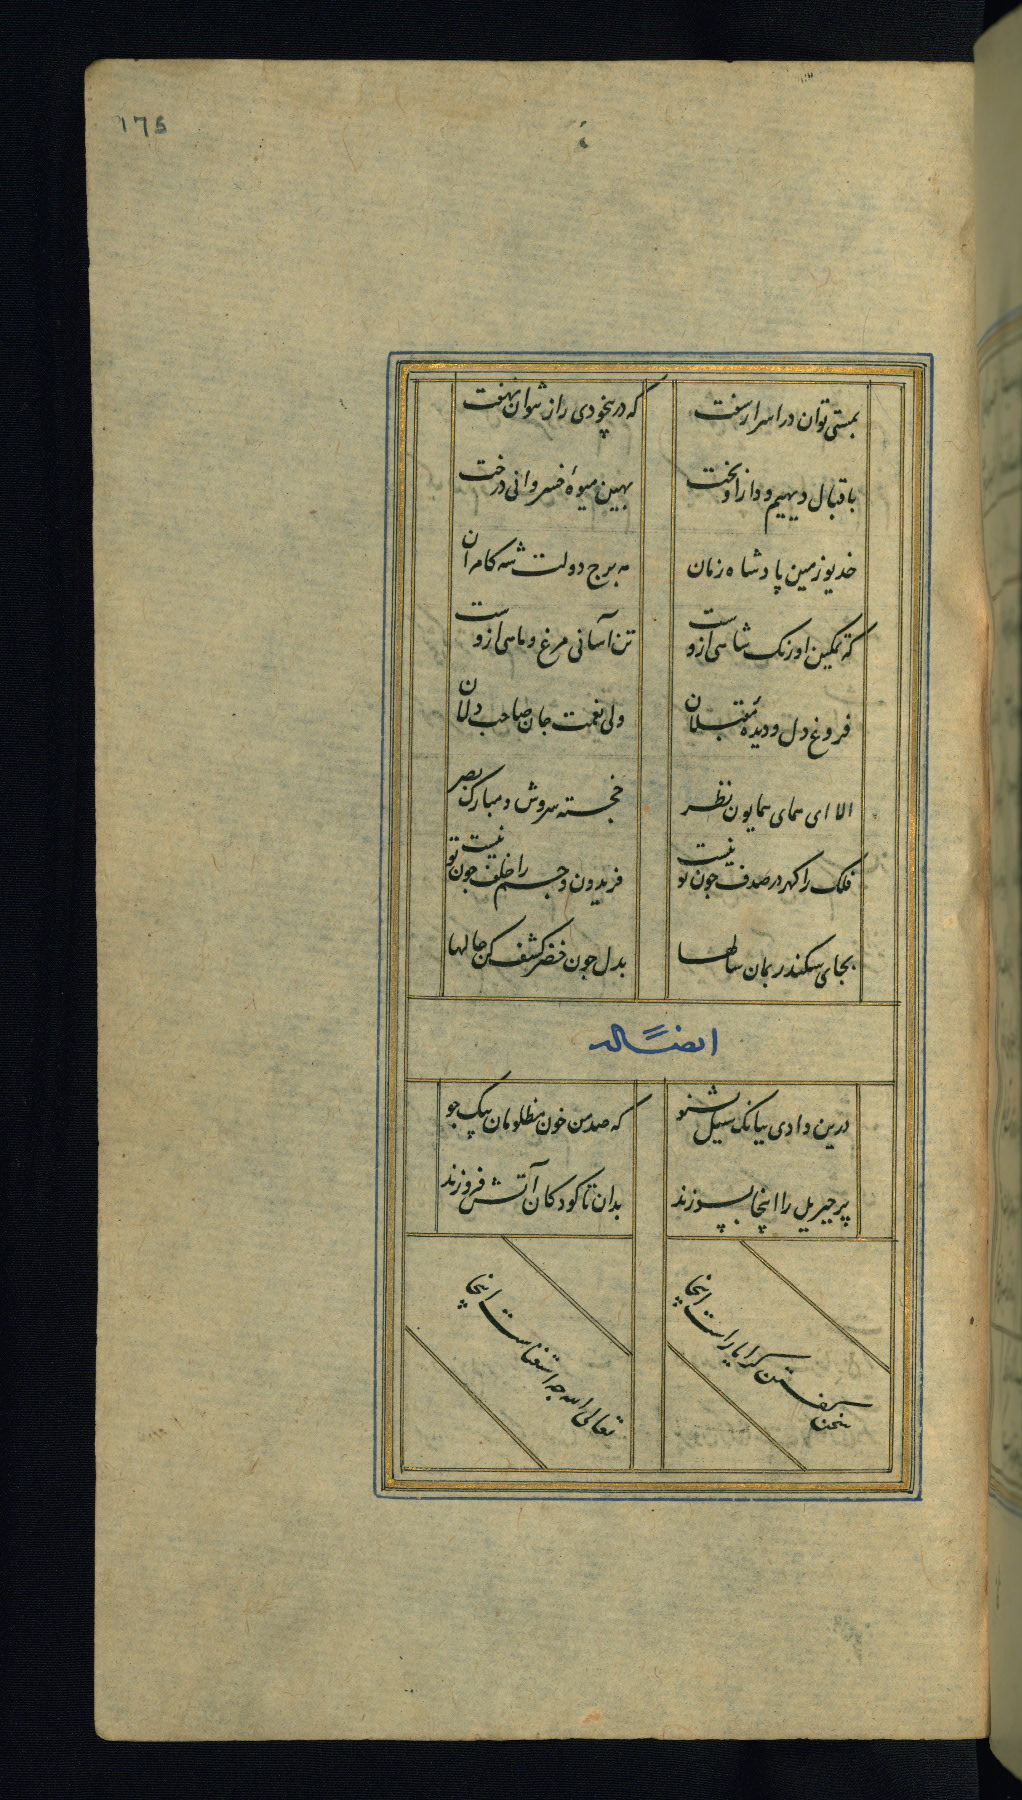 175
بمستی توان در اسرار سفت
که در بیخودی راز نتوان نهفت
باقبال دیهیم و دارا و بخت
بهین میوهٔ خسروانی درخت
خدیو زمین پادشاه زمان
مه برج دولت شه کامران
که تمکین اورنک شاهی ازوست
تن آسانی مرغ و ماهی ازوست
فروغ دل و دیدهٔ مقبلان
ولی نعمت جان صاحب دلان
الا ای همای همایون نظر
خجسته سروش و مبارک
فلک را کهر در صدف چون تو نیست
فریدون و جم را خلف چون تو نیست
بجای سکندر بمان سالها
بدل چون خضر کشف کن حالها
ایضاً له
درین وادی ببانک سیل بشنو
که صد من خون مظلومان بیک جو
پر جبریل را اینجا بسوزند
بدان تا کودکان آتش فروزند
سخن کفتن کرا یاراست اینجا
تعالی الله چه استغناست اینجا